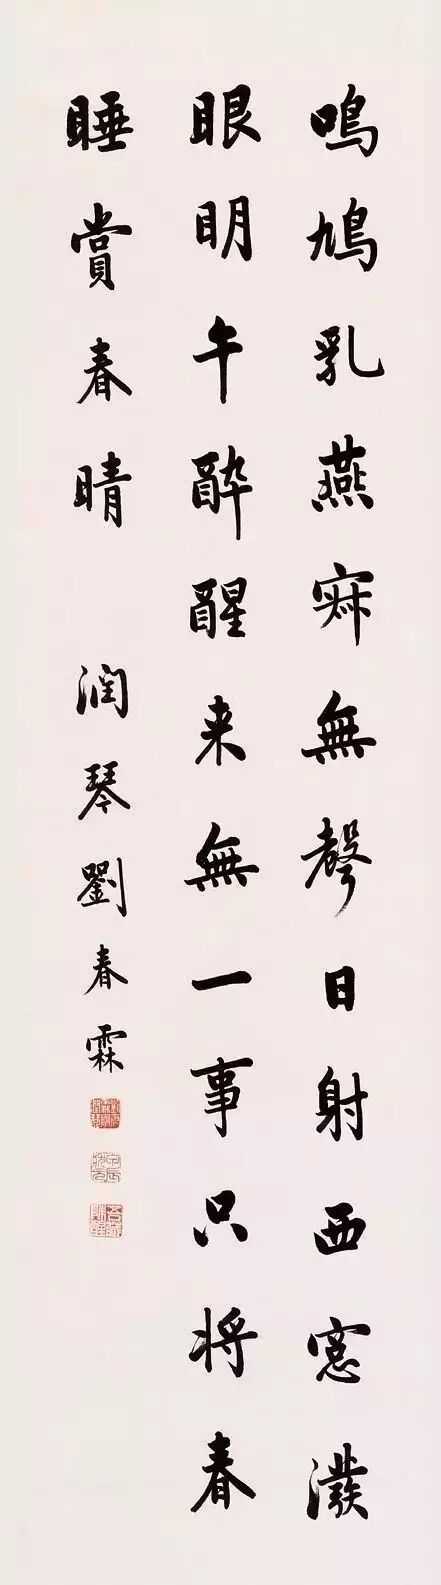 鳴鳩乳燕寂無聲日射西窓潑
眼明午醉醒来無一事只将春
睡賞春晴
潤琴劉春霖